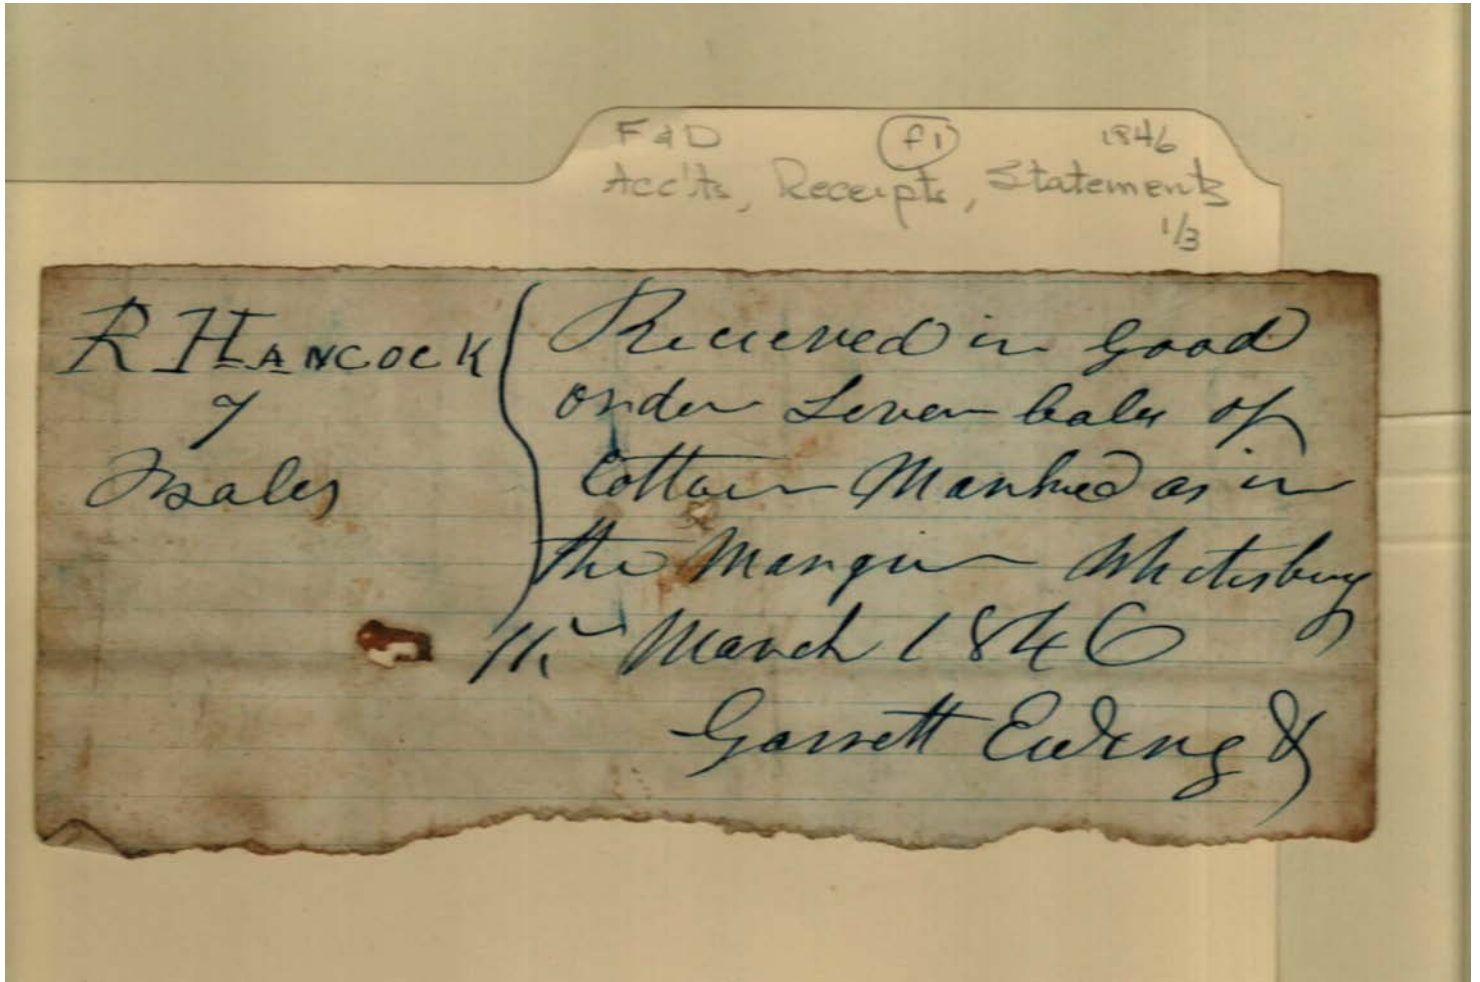 F & D (f1) 1846
Acc'ts, Receipts, Statements
1/3
R HANCOCK
7
Bales
Recieved in Good
order Seven bales of
Cotton Marked as in
the Margin Whitesburg
11 March 1846
Garrett Ewing &